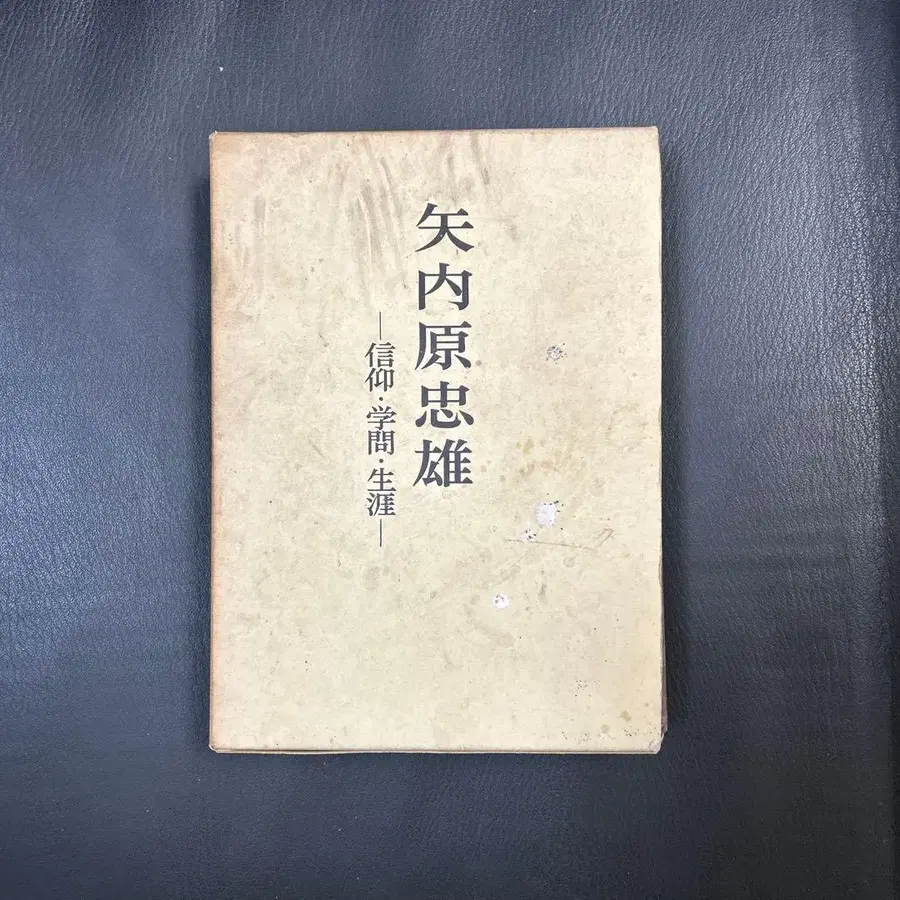 矢内原忠雄
―信仰・学問・生涯―